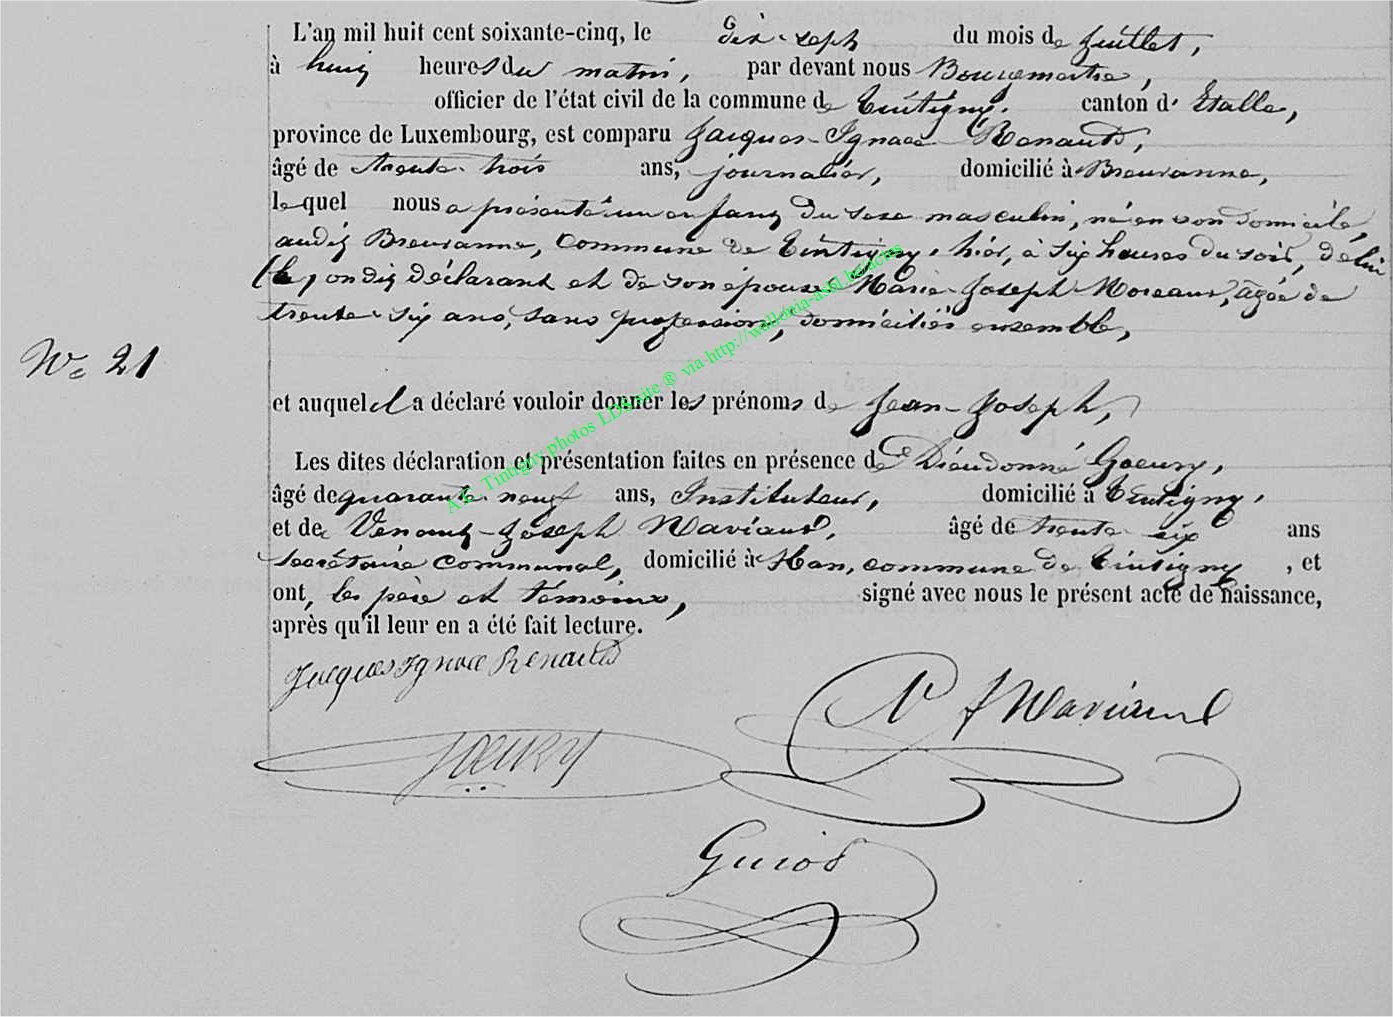 L'an mil huit cent soixante-cinq, le dix-sept du mois de juillet,
à huit heures du matin, par devant nous Bourgmestre,
officier de l'état civil de la commune de Tintigny, canton d'Etalle,
province de Luxembourg, est comparu Jacques-Ignace Renauld,
âgé de trente-trois ans, journalier, domicilié à Breuvanne,
lequel nous a présenté un enfant du sexe masculin, né en son domicile,
audit Breuvanne, commune de Tintigny, hier, à six heures du soir, de lui
ondit déclarant et de son épouse Marie-Joseph Moreaux, âgée de
trente-six ans, sans profession, domiciliés ensemble,
No 21
et auquel il a déclaré vouloir donner les prénoms de Jean-Joseph,
Les dites déclaration et présentation faites en présence de Dieudonné Goeury,
âgé de quarante-neuf ans, Instituteur, domicilié à Tintigny,
et de Venant-Joseph Naviaux, âgé de trente-six ans
secrétaire communal, domicilié à Han, commune de Tintigny, et
ont, les père et témoins, signé avec nous le présent acte de naissance,
après qu'il leur en a été fait lecture.
Jacques Ignace Renauld
V J Naviaux
Goeury
Guiot
A.E. Tintigny photos LDS site ® via http://wallonia-asbl.be/actes